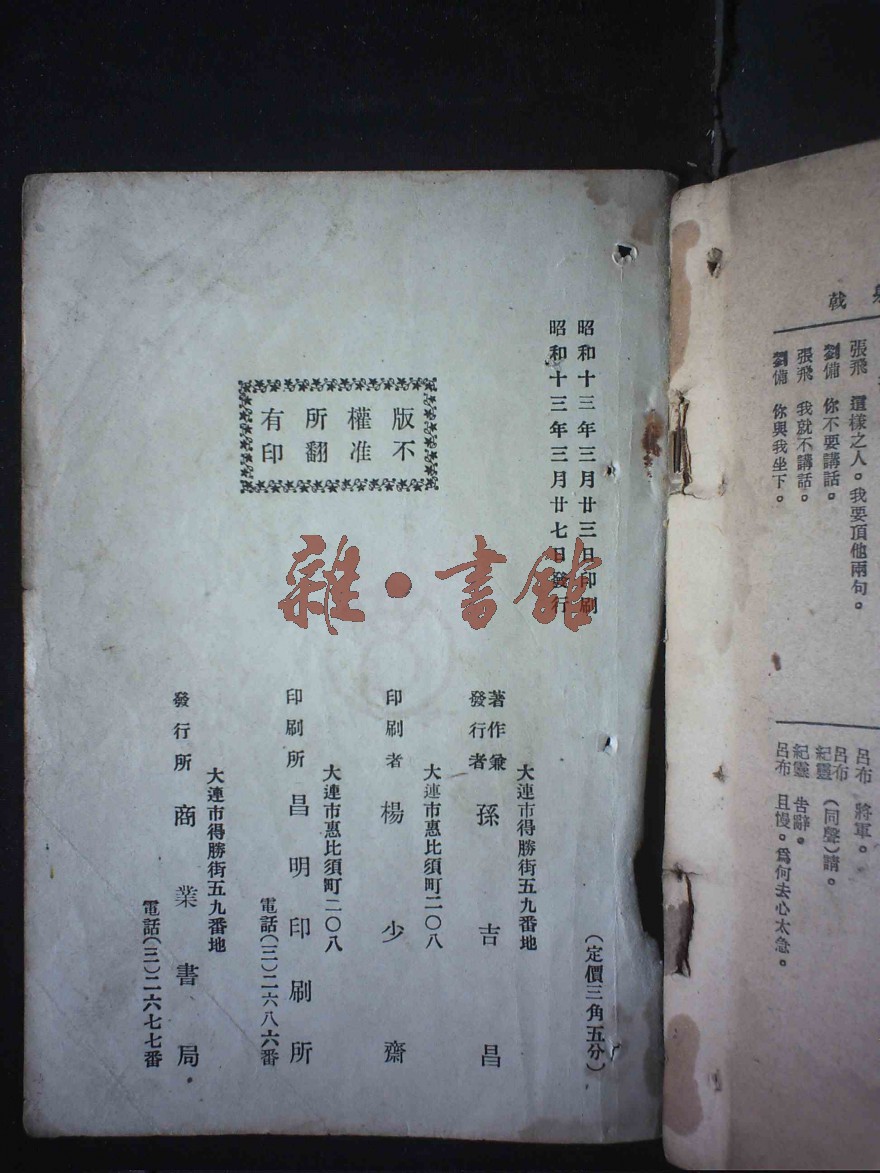 戟
張飛 這樣之人。我要頂他兩句。
劉備 你不要講話。
張飛 我就不講話。
劉備 你與我坐下。
呂布 將軍。
呂布
紀靈 (同聲)請。
紀靈 告辭。
呂布 且慢。爲何去心太急。
昭和十三年三月廿三日印刷
昭和十三年三月廿七日發行
版權所有
不准翻印
雜·書館
(定價三角五分)
大連市得勝街五九番地
著作兼發行者 孫吉昌
大連市惠比須町二〇八
印刷者 楊少齋
大連市惠比須町二〇八
印刷所 昌明印刷所
電話(三)二六八六番
大連市得勝街五九番地
發行所 商業書局
電話(三)二六七七番